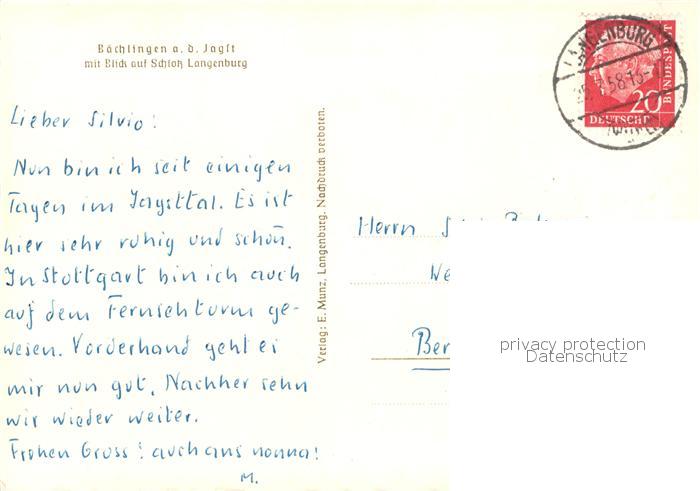 Bächlingen a. d. Jagst
mit Blick auf Schloß Langenburg
Lieber Silvio!
Nun bin ich seit einigen
Tagen im Jagsttal. Es ist
hier sehr ruhig und schön.
In Stuttgart bin ich auch
auf dem Fernsehturm ge-
wesen. Vorderhand geht es
mir nun gut. Nachher sehn
wir wieder weiter.
Frohen Gruss! auch ans nonna!
M.
Verlag: E. Munz, Langenburg. Nachdruck verboten.
LANGENBURG
58
20
DEUTSCHE
BUNDESPOST
Herrn
Ber
privacy protection
Datenschutz